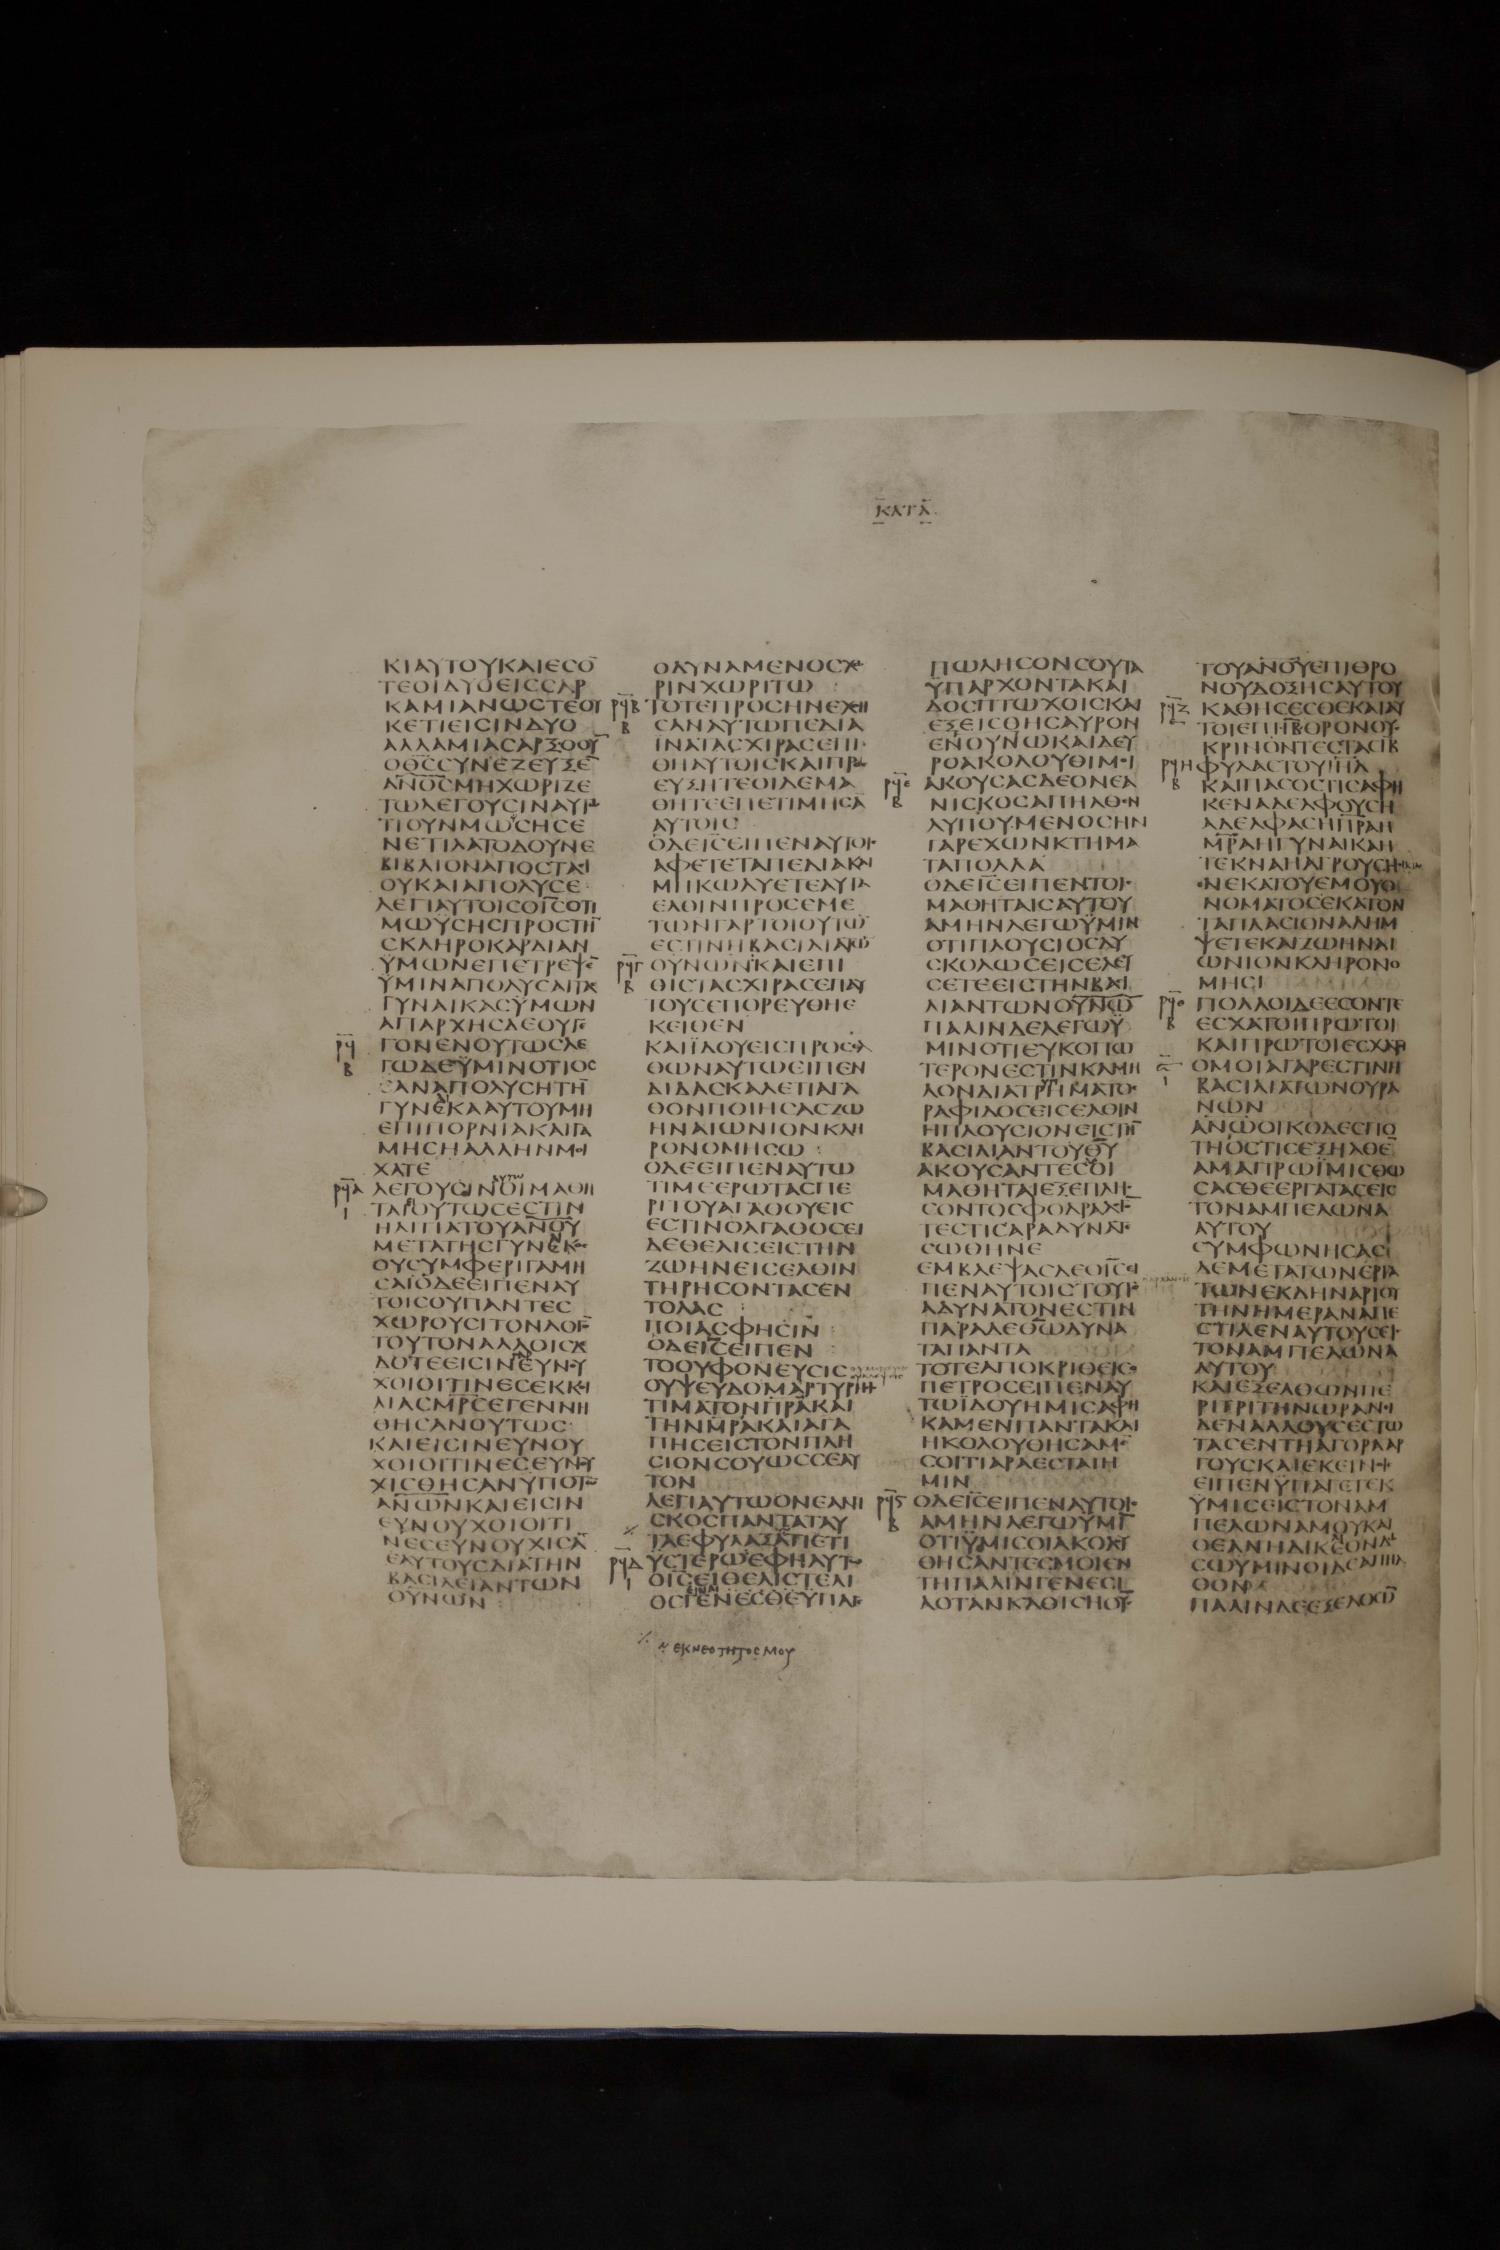 ΚΑΤΑ
ΚΙΑΥΤΟΥΚΑΙΕϹΟ̅
ΤΕΟΙΔΥΟΕΙϹϹΑΡ
ΚΑΜΙΑΝΩϹΤΕΟΥ
ΚΕΤΙΕΙϹΙΝΔΥΟ
ΑΛΛΑΜΙΑϹΑΡΞΟΟΥ̅
ΟΘ̅Ϲ̅ϹΥΝΕΖΕΥΞΕ̅
ΑΝ̅Ο̅Ϲ̅ΜΗΧΩΡΙΖΕ
ΤΩΛΕΓΟΥϹΙΝΑΥΤΩ
ΤΙΟΥΝΜΩΫϹΗϹΕ
ΝΕΤΙΛΑΤΟΔΟΥΝΕ
ΒΙΒΛΙΟΝΑΠΟϹΤΑϹΙ
ΟΥΚΑΙΑΠΟΛΥϹΕ
ΛΕΓΙΑΥΤΟΙϹΟΙ̅Ϲ̅ΟΤΙ
ΜΩΫϹΗϹΠΡΟϹΤΗ̅
ϹΚΛΗΡΟΚΑΡΔΙΑΝ
ΫΜΩΝΕΠΕΤΡΕΨΕ̅
ΫΜΙΝΑΠΟΛΥϹΑΙΤΑϹ
ΓΥΝΑΙΚΑϹΫΜΩΝ
ΑΠΑΡΧΗϹΔΕΟΥΓΕ
ΡϞ Β ΓΟΝΕΝΟΥΤΩϹΛΕ
ΓΩΔΕΫΜΙΝΟΤΙΟϹ
ΑΝΑΠΟΛΥϹΗΤΗ̅
ΓΥΝΕΚΑΑΥΤΟΥΜΗ
ΕΠΙΠΟΡΝΙΑΚΑΙΓΑ
ΜΗϹΗΑΛΛΗΝΜΟΙ
ΧΑΤΕ
ΡϞΑ Ι ΛΕΓΟΥϹΙΝΟΙΜΑΘΗ
ΤΑΙΟΥΤΩϹΕϹΤΙΝ
ΗΑΙΤΙΑΤΟΥΑΝ̅Ο̅Υ̅
ΜΕΤΑΤΗϹΓΥΝΕΚΟϹ
ΟΥϹΥΜΦΕΡΙΓΑΜΗ
ϹΑΙΟΔΕΕΙΠΕΝΑΥ
ΤΟΙϹΟΥΠΑΝΤΕϹ
ΧΩΡΟΥϹΙΤΟΝΛΟΓΟ̅
ΤΟΥΤΟΝΑΛΛΟΙϹΔΕ
ΔΟΤΕΕΙϹΙΝΕΥΝΟΥ
ΧΟΙΟΙΤΙΝΕϹΕΚΚΟΙ
ΛΙΑϹΜ̅Ρ̅Ϲ̅ΕΓΕΝΝΗ
ΘΗϹΑΝΟΥΤΩϹ
ΚΑΙΕΙϹΙΝΕΥΝΟΥ
ΧΟΙΟΙΤΙΝΕϹΕΥΝΟΥ
ΧΙϹΘΗϹΑΝΫΠΟΤΩ̅
ΑΝ̅Ω̅Ν̅ΚΑΙΕΙϹΙΝ
ΕΥΝΟΥΧΟΙΟΙΤΙ
ΝΕϹΕΥΝΟΥΧΙϹΑ̅
ΕΑΥΤΟΥϹΔΙΑΤΗΝ
ΒΑϹΙΛΕΙΑΝΤΩΝ
ΟΥΝΩΝ
ΟΔΥΝΑΜΕΝΟϹΧΩ
ΡΙΝΧΩΡΙΤΩ
ΡϞΒ Β ΤΟΤΕΠΡΟϹΗΝΕΧΘΗ
ϹΑΝΑΥΤΩΠΕΔΙΑ
ΙΝΑΤΑϹΧΙΡΑϹΕΠΙ
ΘΗΑΥΤΟΙϹΚΑΙΠΡΟϹ
ΕΥΞΗΤΕΟΙΔΕΜΑ
ΘΗΤΕΕΠΕΤΙΜΗϹΑ̅
ΑΥΤΟΙϹ
ΟΔΕΙ̅Ϲ̅ΕΙΠΕΝΑΥΤΟΙϹ
ΑΦΕΤΕΤΑΠΕΔΙΑΚΑΙ
ΜΗΚΩΛΥΕΤΕΑΥΤΑ
ΕΛΘΙΝΠΡΟϹΕΜΕ
ΤΩΝΓΑΡΤΟΙΟΥΤΩ̅
ΕϹΤΙΝΗΒΑϹΙΛΙΑΤΩ̅
ΡϞΓ Β ΟΥΝΩΝΚΑΙΕΠΙ
ΘΙϹΤΑϹΧΙΡΑϹΕΠΑΥ
ΤΟΥϹΕΠΟΡΕΥΘΗΕ
ΚΕΙΘΕΝ
ΚΑΙΪΔΟΥΕΙϹΠΡΟϹΕΛ
ΘΩΝΑΥΤΩΕΙΠΕΝ
ΔΙΔΑϹΚΑΛΕΤΙΑΓΑ
ΘΟΝΠΟΙΗϹΑϹΖΩ
ΗΝΑΙΩΝΙΟΝΚΛΗ
ΡΟΝΟΜΗϹΩ
ΟΔΕΕΙΠΕΝΑΥΤΩ
ΤΙΜΕΕΡΩΤΑϹΠΕ
ΡΙΤΟΥΑΓΑΘΟΥΕΙϹ
ΕϹΤΙΝΟΑΓΑΘΟϹΕΙ
ΔΕΘΕΛΙϹΕΙϹΤΗΝ
ΖΩΗΝΕΙϹΕΛΘΙΝ
ΤΗΡΗϹΟΝΤΑϹΕΝ
ΤΟΛΑϹ
ΠΟΙΑϹΦΗϹΙΝ
ΟΔΕΙ̅Ϲ̅ΕΙΠΕΝ
ΤΟΟΥΦΟΝΕΥϹΙϹ
ΟΥΨΕΥΔΟΜΑΡΤΥΡΗϹΙϹ
ΤΙΜΑΤΟΝΠ̅Ρ̅Α̅ΚΑΙ
ΤΗΝΜ̅Ρ̅Α̅ΚΑΙΑΓΑ
ΠΗϹΕΙϹΤΟΝΠΛΗ
ϹΙΟΝϹΟΥΩϹϹΕΑΥ
ΤΟΝ
ΛΕΓΙΑΥΤΩΟΝΕΑΝΙ
ϹΚΟϹΠΑΝΤΑΤΑΥ
ΤΑΕΦΥΛΑΞΑΤΙΕΤΙ
ΡϞΔ Ι ΥϹΤΕΡΩΕΦΗΑΥΤΩ
ΟΙ̅Ϲ̅ΕΙΘΕΛΙϹΤΕΛΙ
ΟϹΓΕΝΕϹΘΕΫΠΑΓΕ
ΕΚΝΕΟΤΗΤΟϹΜΟΥ
ΠΩΛΗϹΟΝϹΟΥΤΑ
ΫΠΑΡΧΟΝΤΑΚΑΙ
ΔΟϹΠΤΩΧΟΙϹΚΑΙ
ΕΞΕΙϹΘΗϹΑΥΡΟΝ
ΕΝΟΥΝΩΚΑΙΔΕΥ
ΡΟΑΚΟΛΟΥΘΙΜΟΙ
ΡϞΕ Β ΑΚΟΥϹΑϹΔΕΟΝΕΑ
ΝΙϹΚΟϹΑΠΗΛΘΕΝ
ΛΥΠΟΥΜΕΝΟϹΗΝ
ΓΑΡΕΧΩΝΚΤΗΜΑ
ΤΑΠΟΛΛΑ
ΟΔΕΙ̅Ϲ̅ΕΙΠΕΝΤΟΙϹ
ΜΑΘΗΤΑΙϹΑΥΤΟΥ
ΑΜΗΝΛΕΓΩΫΜΙΝ
ΟΤΙΠΛΟΥϹΙΟϹΔΥ
ϹΚΟΛΩϹΕΙϹΕΛΕΥ
ϹΕΤΕΕΙϹΤΗΝΒΑϹΙ
ΛΙΑΝΤΩΝΟΥΝΩ̅
ΠΑΛΙΝΔΕΛΕΓΩΫ
ΜΙΝΟΤΙΕΥΚΟΠΩ
ΤΕΡΟΝΕϹΤΙΝΚΑΜΗ
ΛΟΝΔΙΑΤΡΥΠΗΜΑΤΟϹ
ΡΑΦΙΔΟϹΕΙϹΕΛΘΙΝ
ΗΠΛΟΥϹΙΟΝΕΙϹΤΗ̅
ΒΑϹΙΛΙΑΝΤΟΥΘ̅Υ̅
ΑΚΟΥϹΑΝΤΕϹΟΙ
ΜΑΘΗΤΑΙΕΞΕΠΛΗϹ
ϹΟΝΤΟϹΦΟΔΡΑΛΕΓΟ̅
ΤΕϹΤΙϹΑΡΑΔΥΝΑΤΑΙ
ϹΩΘΗΝΕ
ΕΜΒΛΕΨΑϹΔΕΟΙ̅Ϲ̅ΕΙ
ΠΕΝΑΥΤΟΙϹΤΟΥΤΟ
ΑΔΥΝΑΤΟΝΕϹΤΙΝ
ΠΑΡΑΔΕΘ̅Ω̅ΔΥΝΑ
ΤΑΠΑΝΤΑ
ΤΟΤΕΑΠΟΚΡΙΘΕΙϹΟ
ΠΕΤΡΟϹΕΙΠΕΝΑΥ
ΤΩΪΔΟΥΗΜΙϹΑΦΗ
ΚΑΜΕΝΠΑΝΤΑΚΑΙ
ΗΚΟΛΟΥΘΗϹΑΜΕ̅
ϹΟΙΤΙΑΡΑΕϹΤΑΙΗ
ΜΙΝ
ΡϞϚ Β ΟΔΕΙ̅Ϲ̅ΕΙΠΕΝΑΥΤΟΙϹ
ΑΜΗΝΛΕΓΩΥΜΙ̅
ΟΤΙΫΜΙϹΟΙΑΚΟΛΟΥ
ΘΗϹΑΝΤΕϹΜΟΙΕΝ
ΤΗΠΑΛΙΝΓΕΝΕϹΙ
ΑΟΤΑΝΚΑΘΙϹΗΟΥϹ
ΤΟΥΑΝ̅Ο̅Υ̅ΕΠΙΘΡΟ
ΝΟΥΔΟΞΗϹΑΥΤΟΥ
ΡϞΖ ΚΑΘΗϹΕϹΘΕΚΑΙΑΥ
ΤΟΙΕΠΙΙ̅Β̅ΘΡΟΝΟΥϹ
ΚΡΙΝΟΝΤΕϹΤΑϹΙ̅Β̅
ΡϞΗ Β ΦΥΛΑϹΤΟΥΙ̅Η̅Λ̅
ΚΑΙΠΑϹΟϹΤΙϹΑΦΗ
ΚΕΝΑΔΕΛΦΟΥϹΗ
ΑΔΕΛΦΑϹΗΠ̅Ρ̅Α̅Η
Μ̅Ρ̅Α̅ΗΓΥΝΑΙΚΑΗ
ΤΕΚΝΑΗΑΓΡΟΥϹΗ
ΝΕΚΑΤΟΥΕΜΟΥΟ
ΝΟΜΑΤΟϹΕΚΑΤΟΝ
ΤΑΠΛΑϹΙΟΝΑΛΗΜ
ΨΕΤΕΚΑΙΖΩΗΝΑΙ
ΩΝΙΟΝΚΛΗΡΟΝΟ
ΜΗϹΙ
ΡϞΘ Β ΠΟΛΛΟΙΔΕΕϹΟΝΤΕ
ΕϹΧΑΤΟΙΠΡΩΤΟΙ
ΚΑΙΠΡΩΤΟΙΕϹΧΑΤΟΙ
Ι ΟΜΟΙΑΓΑΡΕϹΤΙΝΗ
ΒΑϹΙΛΙΑΤΩΝΟΥΡΑ
ΝΩΝ
ΑΝΩΟΙΚΟΔΕϹΠΟ
ΤΗΟϹΤΙϹΕΞΗΛΘΕ̅
ΑΜΑΠΡΩΪΜΙϹΘΩ
ϹΑϹΘΕΕΡΓΑΤΑϹΕΙϹ
ΤΟΝΑΜΠΕΛΩΝΑ
ΑΥΤΟΥ
ϹΥΜΦΩΝΗϹΑϹ
ΔΕΜΕΤΑΤΩΝΕΡΓΑ
ΤΩΝΕΚΔΗΝΑΡΙΟΥ
ΤΗΝΗΜΕΡΑΝΑΠΕ
ϹΤΙΛΕΝΑΥΤΟΥϹΕΙϹ
ΤΟΝΑΜΠΕΛΩΝΑ
ΑΥΤΟΥ
ΚΑΙΕΞΕΛΘΩΝΠΕ
ΡΙΤΡΙΤΗΝΩΡΑΝΕΙ
ΔΕΝΑΛΛΟΥϹΕϹΤΩ
ΤΑϹΕΝΤΗΑΓΟΡΑΑΡ
ΓΟΥϹΚΑΙΕΚΕΙΝΟΙϹ
ΕΙΠΕΝΫΠΑΓΕΤΕΚ
ΫΜΙϹΕΙϹΤΟΝΑΜ
ΠΕΛΩΝΑΜΟΥΚΑΙ
ΟΕΑΝΗΔΙΚΕΟΝΔΩ
ϹΩΥΜΙΝΟΙΔΕΑΠΗΛ
ΘΟΝ
ΠΑΛΙΝΔΕΕΞΕΛΘΩ̅